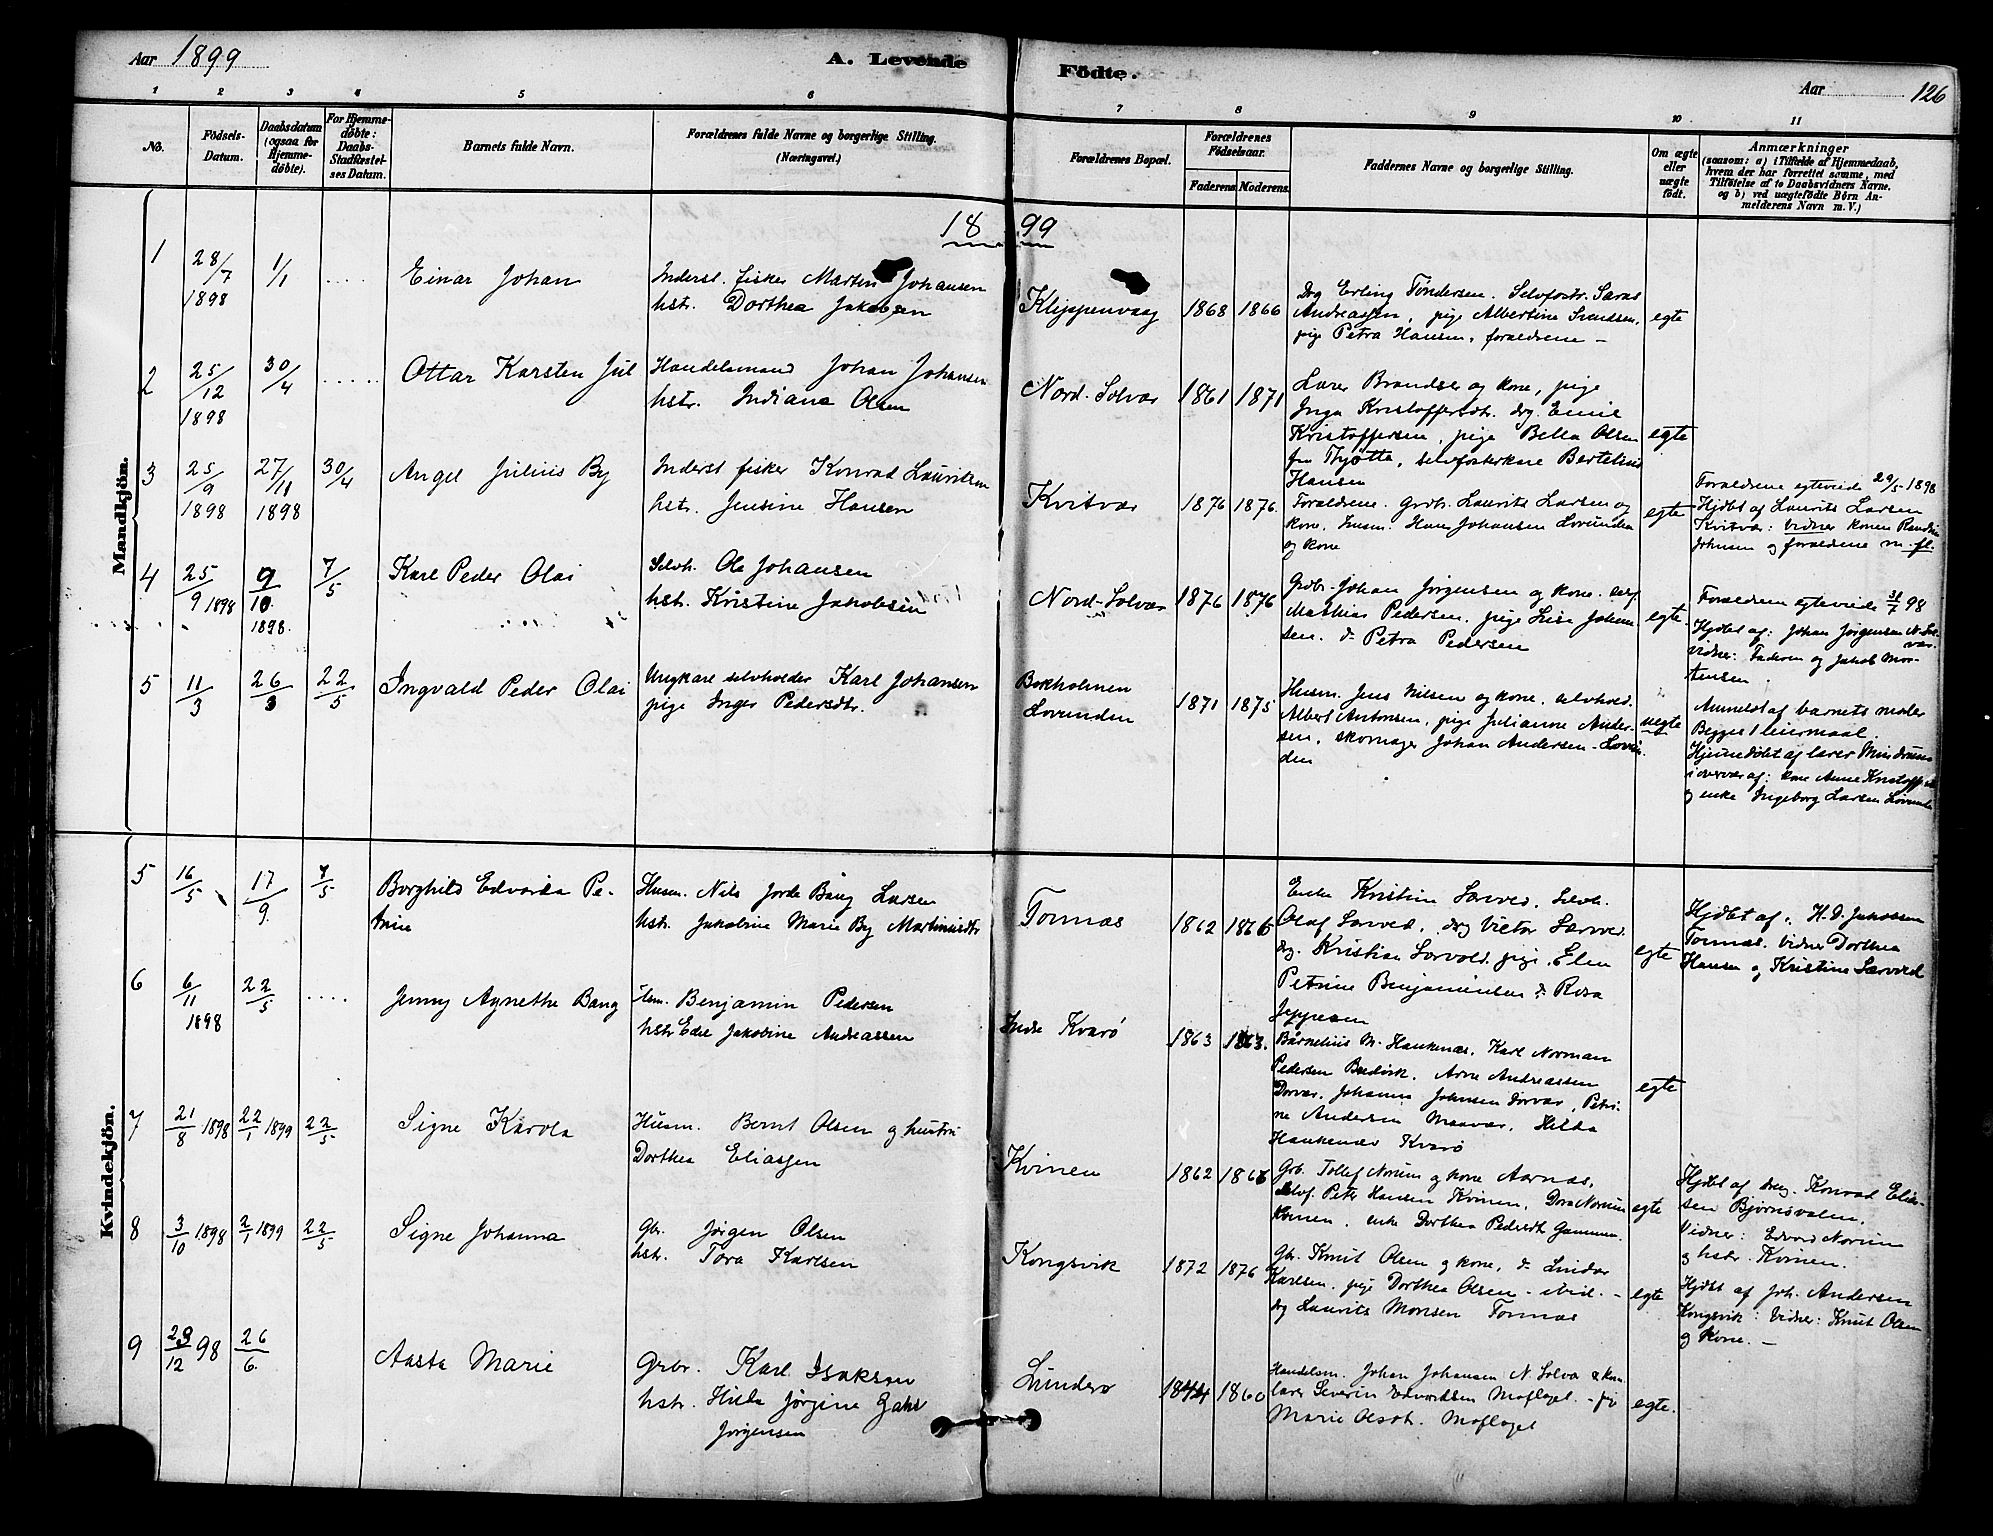 Aar 1899
A. Levende Födte.
Aar 126
1 2 3 4 5 6 7 8 9 10 11
No.
Födsels-Datum.
Daabsdatum (ogsaa for Hjemmedöbte).
For Hjemmedöbte: Daabs-Stadfæstelses Datum.
Barnets fulde Navn.
Forældrenes fulde Navne og borgerlige Stilling. (Næringsvei.)
Forældrenes Bopæl.
Forældrenes Födselsaar.
Faderens. Moderens.
Faddernes Navne og borgerlige Stilling.
Om ægte eller uægte födt.
Anmærkninger
(saasom: a) i Tilfælde af Hjemmedaab,
hvem der har forrettet samme, med
Tilföielse af to Daabsvidners Navne.
og b) ved uægtefödte Börn Anmelderens Navn m. V.)
1899
Mandkjön.
1
28/7 1898
1/1
.....
Einar Johan
Inderst. fisker Martin Johansen
hstr. Dorthea Jakobsen
Klippenvaag
1868 1866
Drg Erling Tøndersen. Selvfostr. Saras
Andreassen, pige Albertine
pige Petra Hansen, forældrene –
egte
2
25/12 1898
30/4
.....
Ottar Karsten Jul
Handelsmand Johan Johansen
hstr. Indiana Olsen
Nord-Solvær
1861 1871
Lærer Brandser og kone, pige
Inga Kristoffersdtr. drg. Emil
Kristoffersen, pige Bella Olsen
fra Thjøtta, Bertelius
Hansen
egte
3
25/9 1898
27/11 1898
30/4
Angel Julius By
Inderst fisker Konrad Lauritsen
hstr. Jensine Hansen
Kvitvær
1876 1876
Forældrene. Grdbr. Laurits Larsen og
kone. Husm. Hans Johansen Lovunden
og kone
egte
Forældrene egteviede 29/5 1898
Hjdbt af Laurits Larsen
Kvitvær: vidner konen
Johnsen og forældrene m. fl.
4
25/9 1898
9/10 1898
7/5
Karl Peder Olai
Selvh. Ole Johansen
hstr. Kristine Jakobsen
Nord-Solvær
1876 1876
Grdbr. Johan Jørgensen og kone. Self
Mathias Pedersen. pige Lise Johan-
sen. do Petra Pedersen
egte
Forældrene egteviede 31/7 98
Hjdbt af: Johan Jørgensen N. Sol-
vær.
vidner: Faderen og Jakob Mor-
tensen.
5
11/3
26/3
22/5
Ingvald Peder Olai
Ungkarl selvholder Karl Johansen
pige Inger Pedersdtr.
Bokholmen
Lovunden
1871 1875
Husm. Jens Nilsen og kone. selvhold.
Albert Antonsen, pige Julianne Ander-
sen, skomager Johan Andersen – Lovun-
den
uegte
Anmeldt af barnets moder
Begges 1 leiermaal.
Hjemmedøbt af lærer
i overvær af: kone Anne
og enke Ingeborg Larsen Lovunden
Kvindekjön.
5
16/5
17/9
7/5
Borghild Edvarda Pe-
trine
Husm. Nils Jorde Bang Larsen
hstr. Jakobine Marie By Martinusdtr
Tonnes
1862 1866
Enke Kristine Sørved. Selvh.
Olaf Sørved. drg Victor Sørved.
drg. Kristian Sørvold. pige. Elen
Petrine Benjaminsen do Rosa
Jeppesen
egte
Hjdbt af: H. D. Jakobsen
Tonnes. vidner Dorthea
Hansen og Kristine Sørved
6
6/11 1898
22/5
.....
Jenny Agnethe Bang
Husm. Benjamin Pedersen
hstr Edel Jakobine Andreassen
Indre Kvarø
1863 1863.
M. Haukenæs. Karl Norman
Pedersen Arne Andreassen
Dorvær. Johanna Johnsen Dorvær, Petri-
ne Andersen Maavær. Hilda
Haukenæs Kvarø
egte
7
21/8 1898
22/1 1899
22/5
Signe Karola
Husm. Bernt Olsen og hustru
Dorthea Eliassen
Kvinen
1862 1866
Grb. Tollef Norum og kone Aarnæs.
Selvf. Peter Hansen Kvinen, Dora Norum
Kvinen. enke Dorthea Pedersdt. Gammen.
egte
Hjdbt af drg. Konrad Elias-
sen Bjørnsvalen.
Vidner: Edvard Norum
og hstr. Kvinen.
8
3/10 1898
2/1 1899
22/5
Signe Johanna
Gbr. Jørgen Olsen
hstr. Tora Karlsen
Kongsvik
1872 1876
Gbr. Knut Olsen og kone, do Lindor
Karlsen. pige Dorthea Olsen – ibid. –
drg Laurits Monsen Tonnes
egte
Hjdbt af Joh. Andersen
Kongsvik: Vidner: Knut Olsen
og kone. –
9
23/12 98
26/6
Aasta Marie
Grbr. Karl Isaksen
hstr. Hilda Jørgine
Jørgensen
Lunderø
1844 1860
Handelsm. Johan Johansen N. Solvær & kone
lærer Severin Edvardsen Moflaget. –
Marie Olsdt. Moflaget
egte.